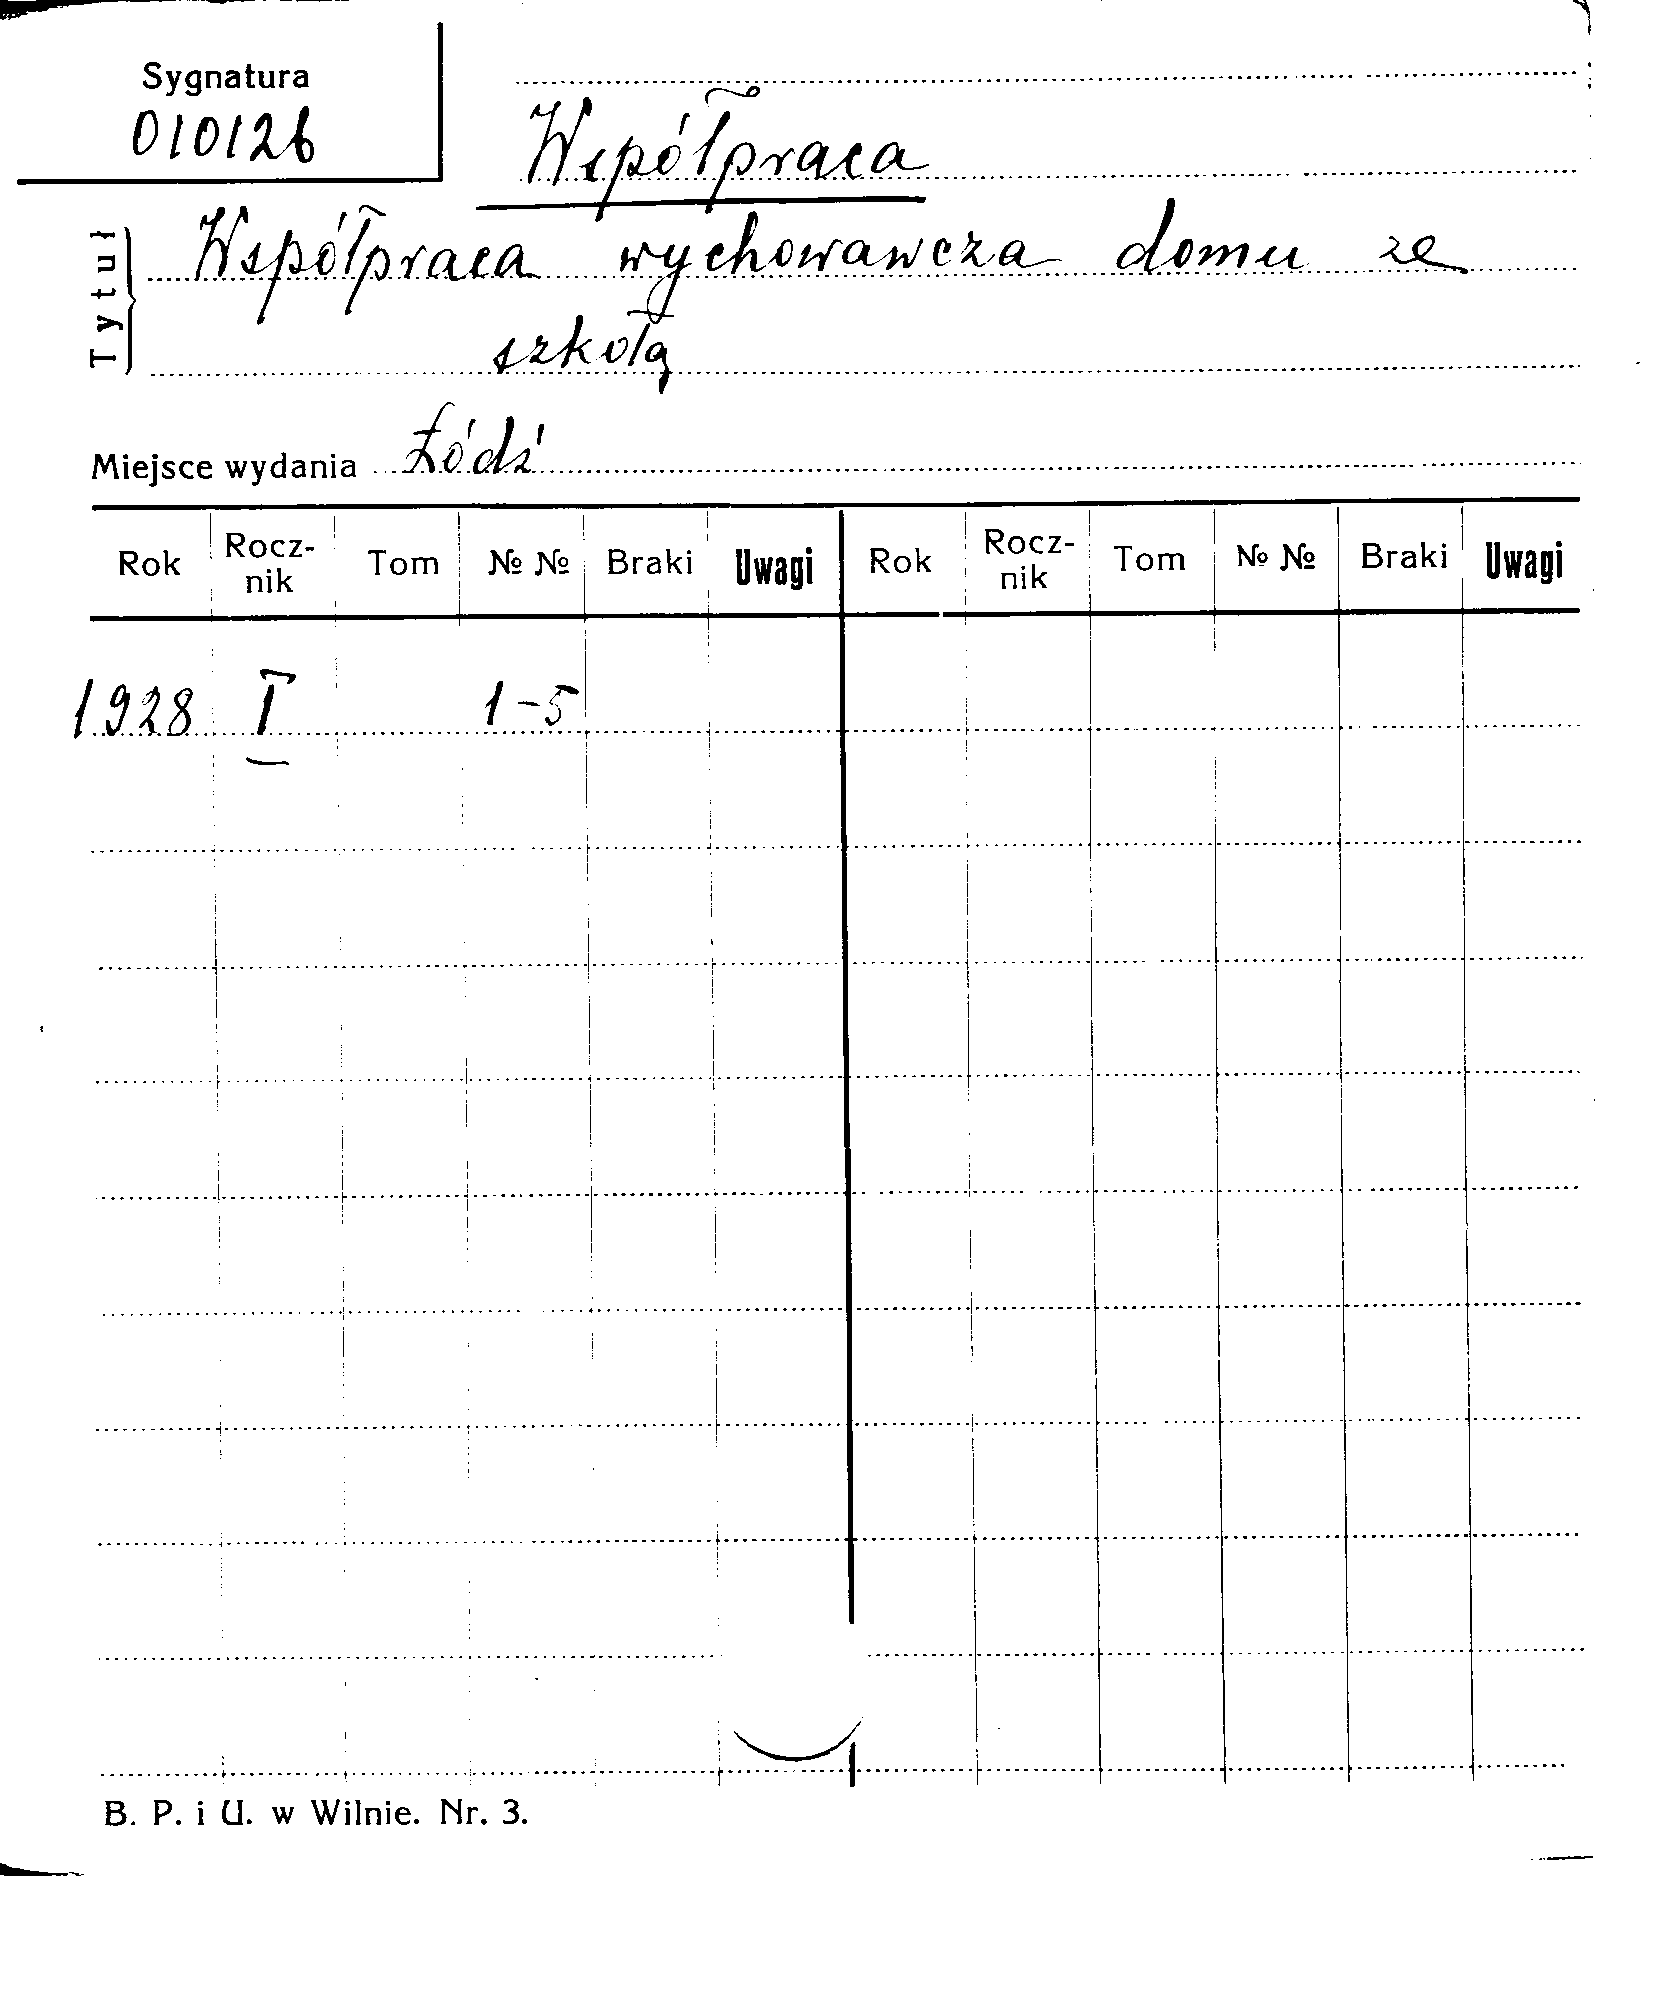 Sygnatura
010126
Współpraca
Tytuł
Współpraca wychowawcza domu ze
szkołą
Miejsce wydania Łódź
Rok Rocz- Tom № № Braki Uwagi Rok Rocz- Tom № № Braki Uwagi
nik nik
1928 I 1-5
B. P. i U. w Wilnie. Nr. 3.